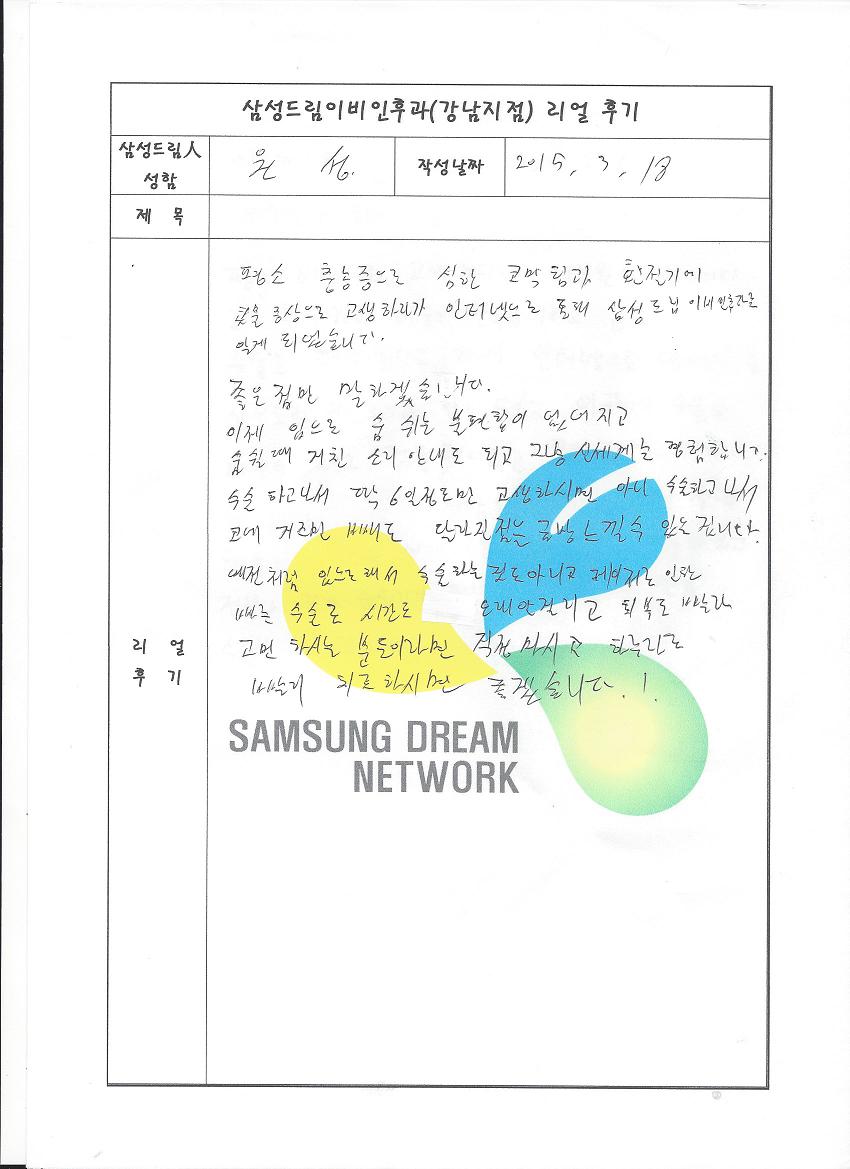 삼성드림이비인후과(강남지점) 리얼 후기
삼성드림人 성함
윤 성.
작성날짜
2015. 3. 18
제 목
평소 축농증으로 심한 코막힘과 환절기에
콧물 증상으로 고생하다가 인터넷으로 통해 삼성드림이비인후과를
알게 되었습니다.
좋은점만 말하겠습니다.
이제 입으로 숨 쉬는 불편함이 없어지고
숨쉴때 거친 소리 안내도 되고 그냥 신세계를 경험합니다.
수술 하고나서 딱 6일정도만 고생하시면 아니 수술하고나서
코에 거즈만 빼도 달라진점을 금방 느낄수 있을 겁니다.
예전처럼 수술하는것도아니고 레이저로 인한
빠른 수술로 시간도 오래안걸리고 회복도 빨라
고민 하시는 분들이라면 걱정 마시고 하루라도
빨리 치료하시면 좋겠습니다.!
리 얼
후 기
SAMSUNG DREAM
NETWORK